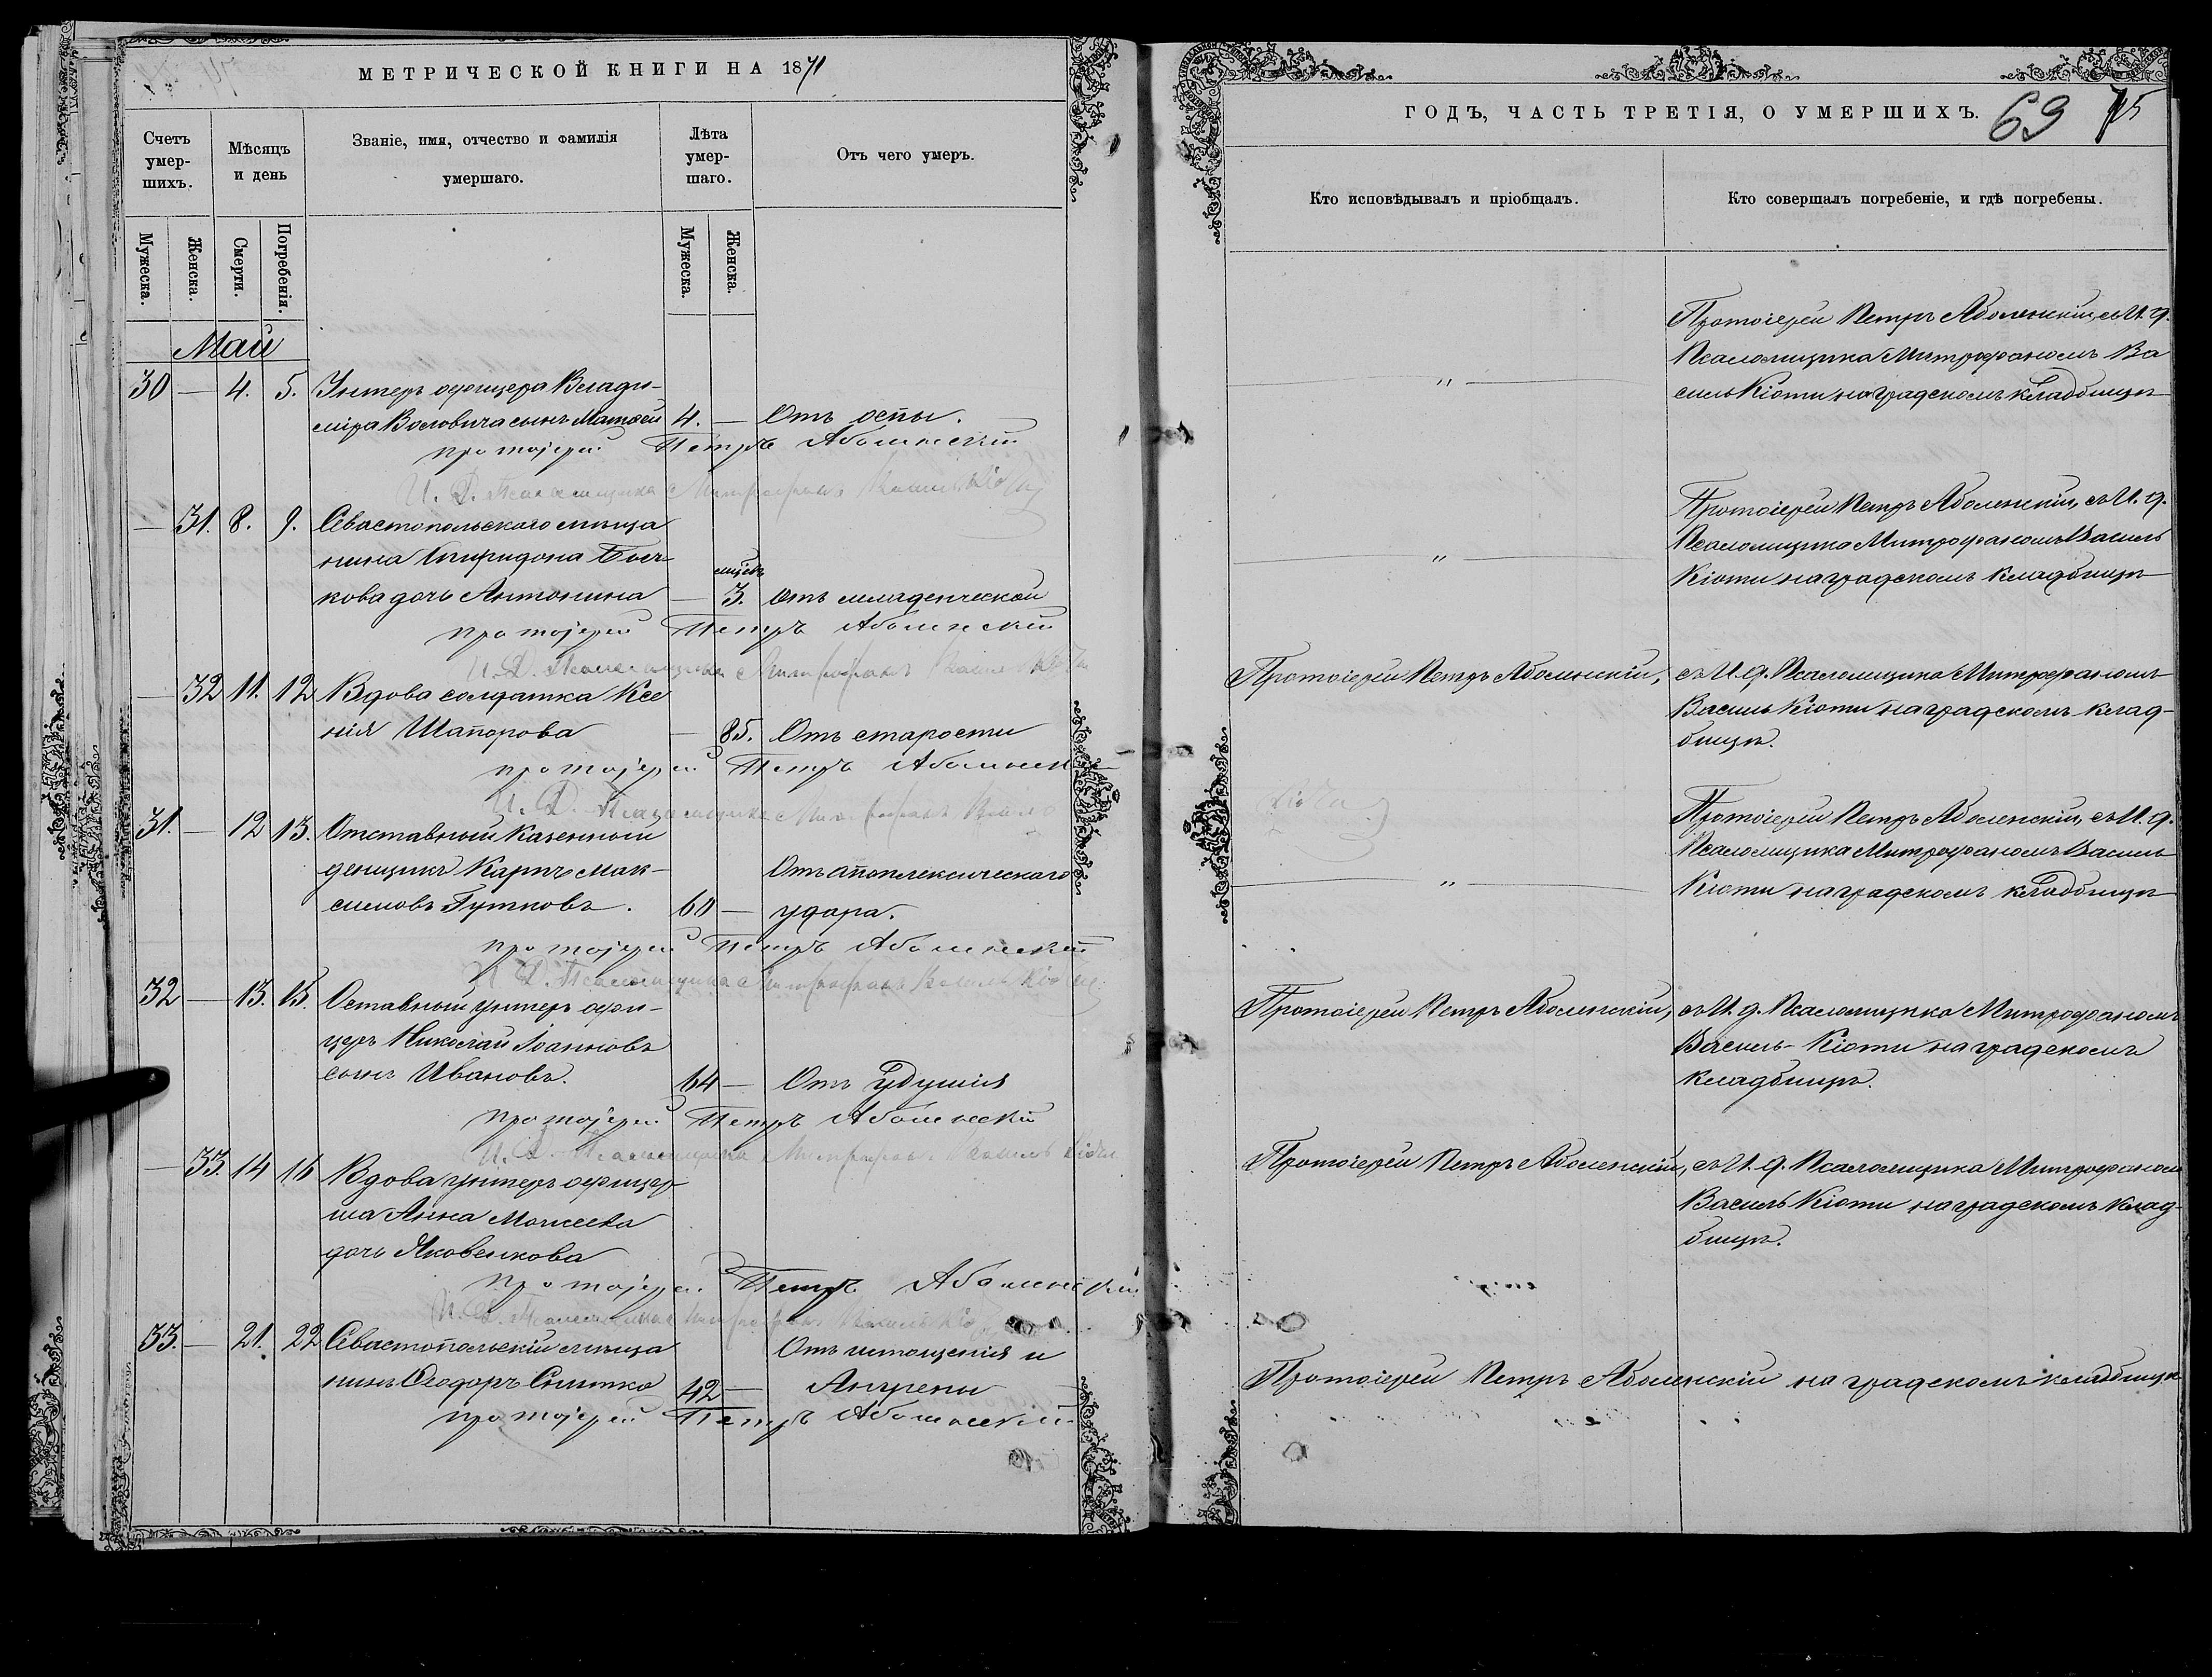 МЕТРИЧЕСКОЙ КНИГИ НА 1871
Счетъ умершихъ.
Мѣсяцъ и день
Званіе, имя, отчество и фамилія умершаго.
Лѣта умершаго.
Отъ чего умеръ.
Мужеска.
Женска.
Смерти.
Погребенія.
Мужеска.
Женска.
Май
30 — 4. 5. Унтеръ офицера Влади-
міра Воловича сынъ Матѳей 4. — Отъ оспы.
протоіерей Петръ Аболенскій
И. Д. Псаломщика Митрофанъ Василькіоти
— 31. 8. 9. Севастопольскаго мѣща
нина Спиридона Быч-
мѣсяц
кова дочь Антонина — 3. Отъ младенческой
протоіерей Петръ Аболенскій
И. Д. Псаломщика Митрофанъ Василькіоти
— 32 11. 12 Вдова солдатка Ксе
нія Шапорова — 85. Отъ старости
протоіерей Петръ Аболенскій
И. Д. Псаломщика Митрофанъ Василь
31. — 12 13. Отставный казенный
денщикъ Карпъ Мак- Отъ апоплексическаго
симовъ Гутновъ. 60 — удара.
протоіерей Петръ Аболенскій
И. Д. Псаломщика Митрофанъ Василькіоти
32 — 13. 15. Оставный унтеръ офи-
церъ Николай Іоанновъ
сынъ Ивановъ. 64 — Отъ удушія
протоіерей Петръ Аболенскій
И. Д. Псаломщика Митрофанъ Василькіоти
— 33. 14 16 Вдова унтеръ офицер-
ша Анна Моисеева
дочь Яковенкова
протоіерей Петръ Аболенскій
И. Д. Псаломщика Митрофанъ Василькіо
33. — 21. 22 Севастопольскій мѣща Отъ истощенія и
нинъ Ѳеодоръ Снитко 42 — Ангрены
протоіерей Петръ Аболенскій
ГОДЪ, ЧАСТЬ ТРЕТІЯ, О УМЕРШИХЪ. 69 75
Кто исповѣдывалъ и пріобщалъ.
Кто совершалъ погребеніе, и гдѣ погребены.
Протоіерей Петръ Аболенскій, съ И. д.
Псаломщика Митрофаномъ Ва
〃 силькіоти на градскомъ кладбищѣ
Протоіерей Петръ Аболенскій, съ И. д.
Псаломщика Митрофаномъ Василь
〃 Кіоти на градскомъ кладбищѣ
Протоіерей Петръ Аболенскій, съ И. д. Псаломщика Митрофаномъ
Василь Кіоти на градскомъ клад-
бищѣ.
кіоти
Протоіерей Петръ Аболенскій, съ И. д.
Псаломщика Митрофаномъ Василь
〃 Кіоти на градскомъ кладбищѣ
Протоіерей Петръ Аболенскій, съ И. д. Псаломщика Митрофаномъ
Василь-Кіоти на градскомъ
кладбищѣ.
Протоіерей Петръ Аболенскій, съ И. д. Псаломщика Митрофаномъ
Василь Кіоти на градскомъ клад-
бищѣ.
Протоіерей Петръ Аболенскій на градскомъ кладбищѣ